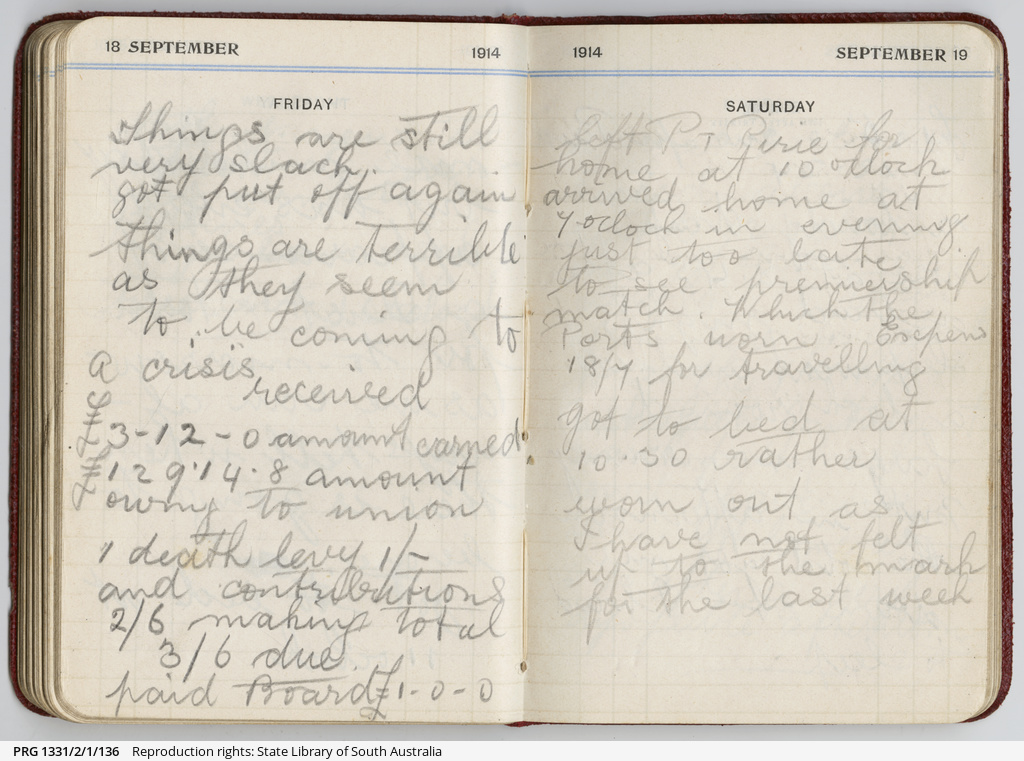 18 SEPTEMBER 1914
FRIDAY
Things are still
very slack.
got put off again
things are terrible
as they seem
to be coming to
a crisis
received
£3-12-0 amount earned
£129.14.8 amount
owing to union
1 death levy 1/-
and contributions
2/6 making total
3/6 due.
paid Board £1-0-0
1914 SEPTEMBER 19
SATURDAY
left PT Pirie for
home at 10 oclock
arrived home at
7 oclock in evening
just too late
to see premiership
match. Which the
Ports worn. Expens
18/7 for travelling
got to bed at
10.30 rather
worn out as
I have not felt
up to the mark
for the last week
PRG 1331/2/1/136 Reproduction rights: State Library of South Australia